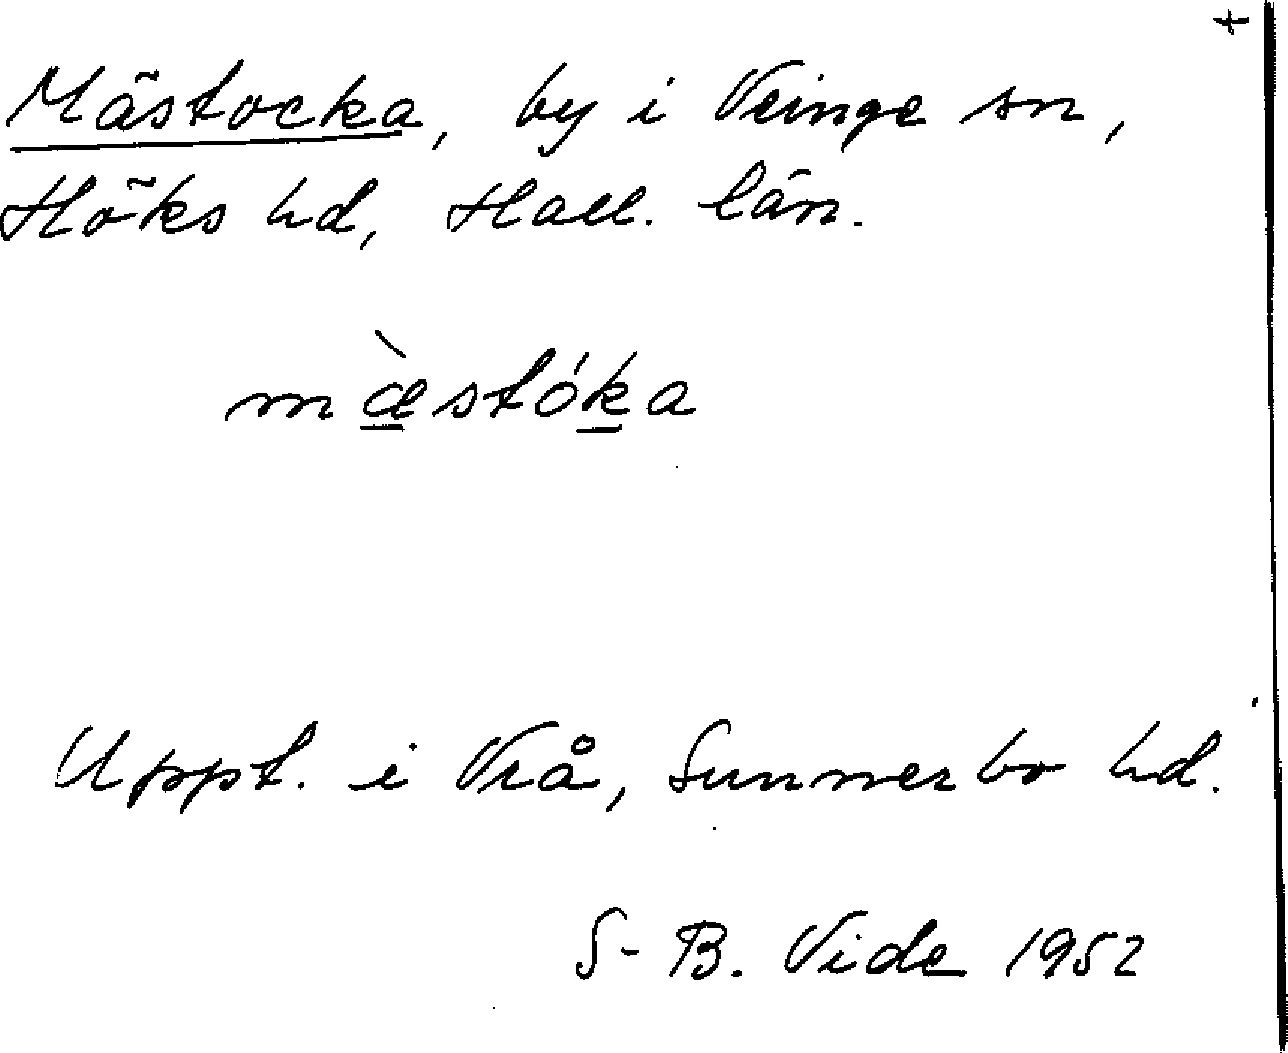 Mästocka, by i Veinge sn,
Höks hd, Hall. län.
mæ̀stóka
Uppt. i Vrå, Sunnerbo hd.
S-B. Vide 1952